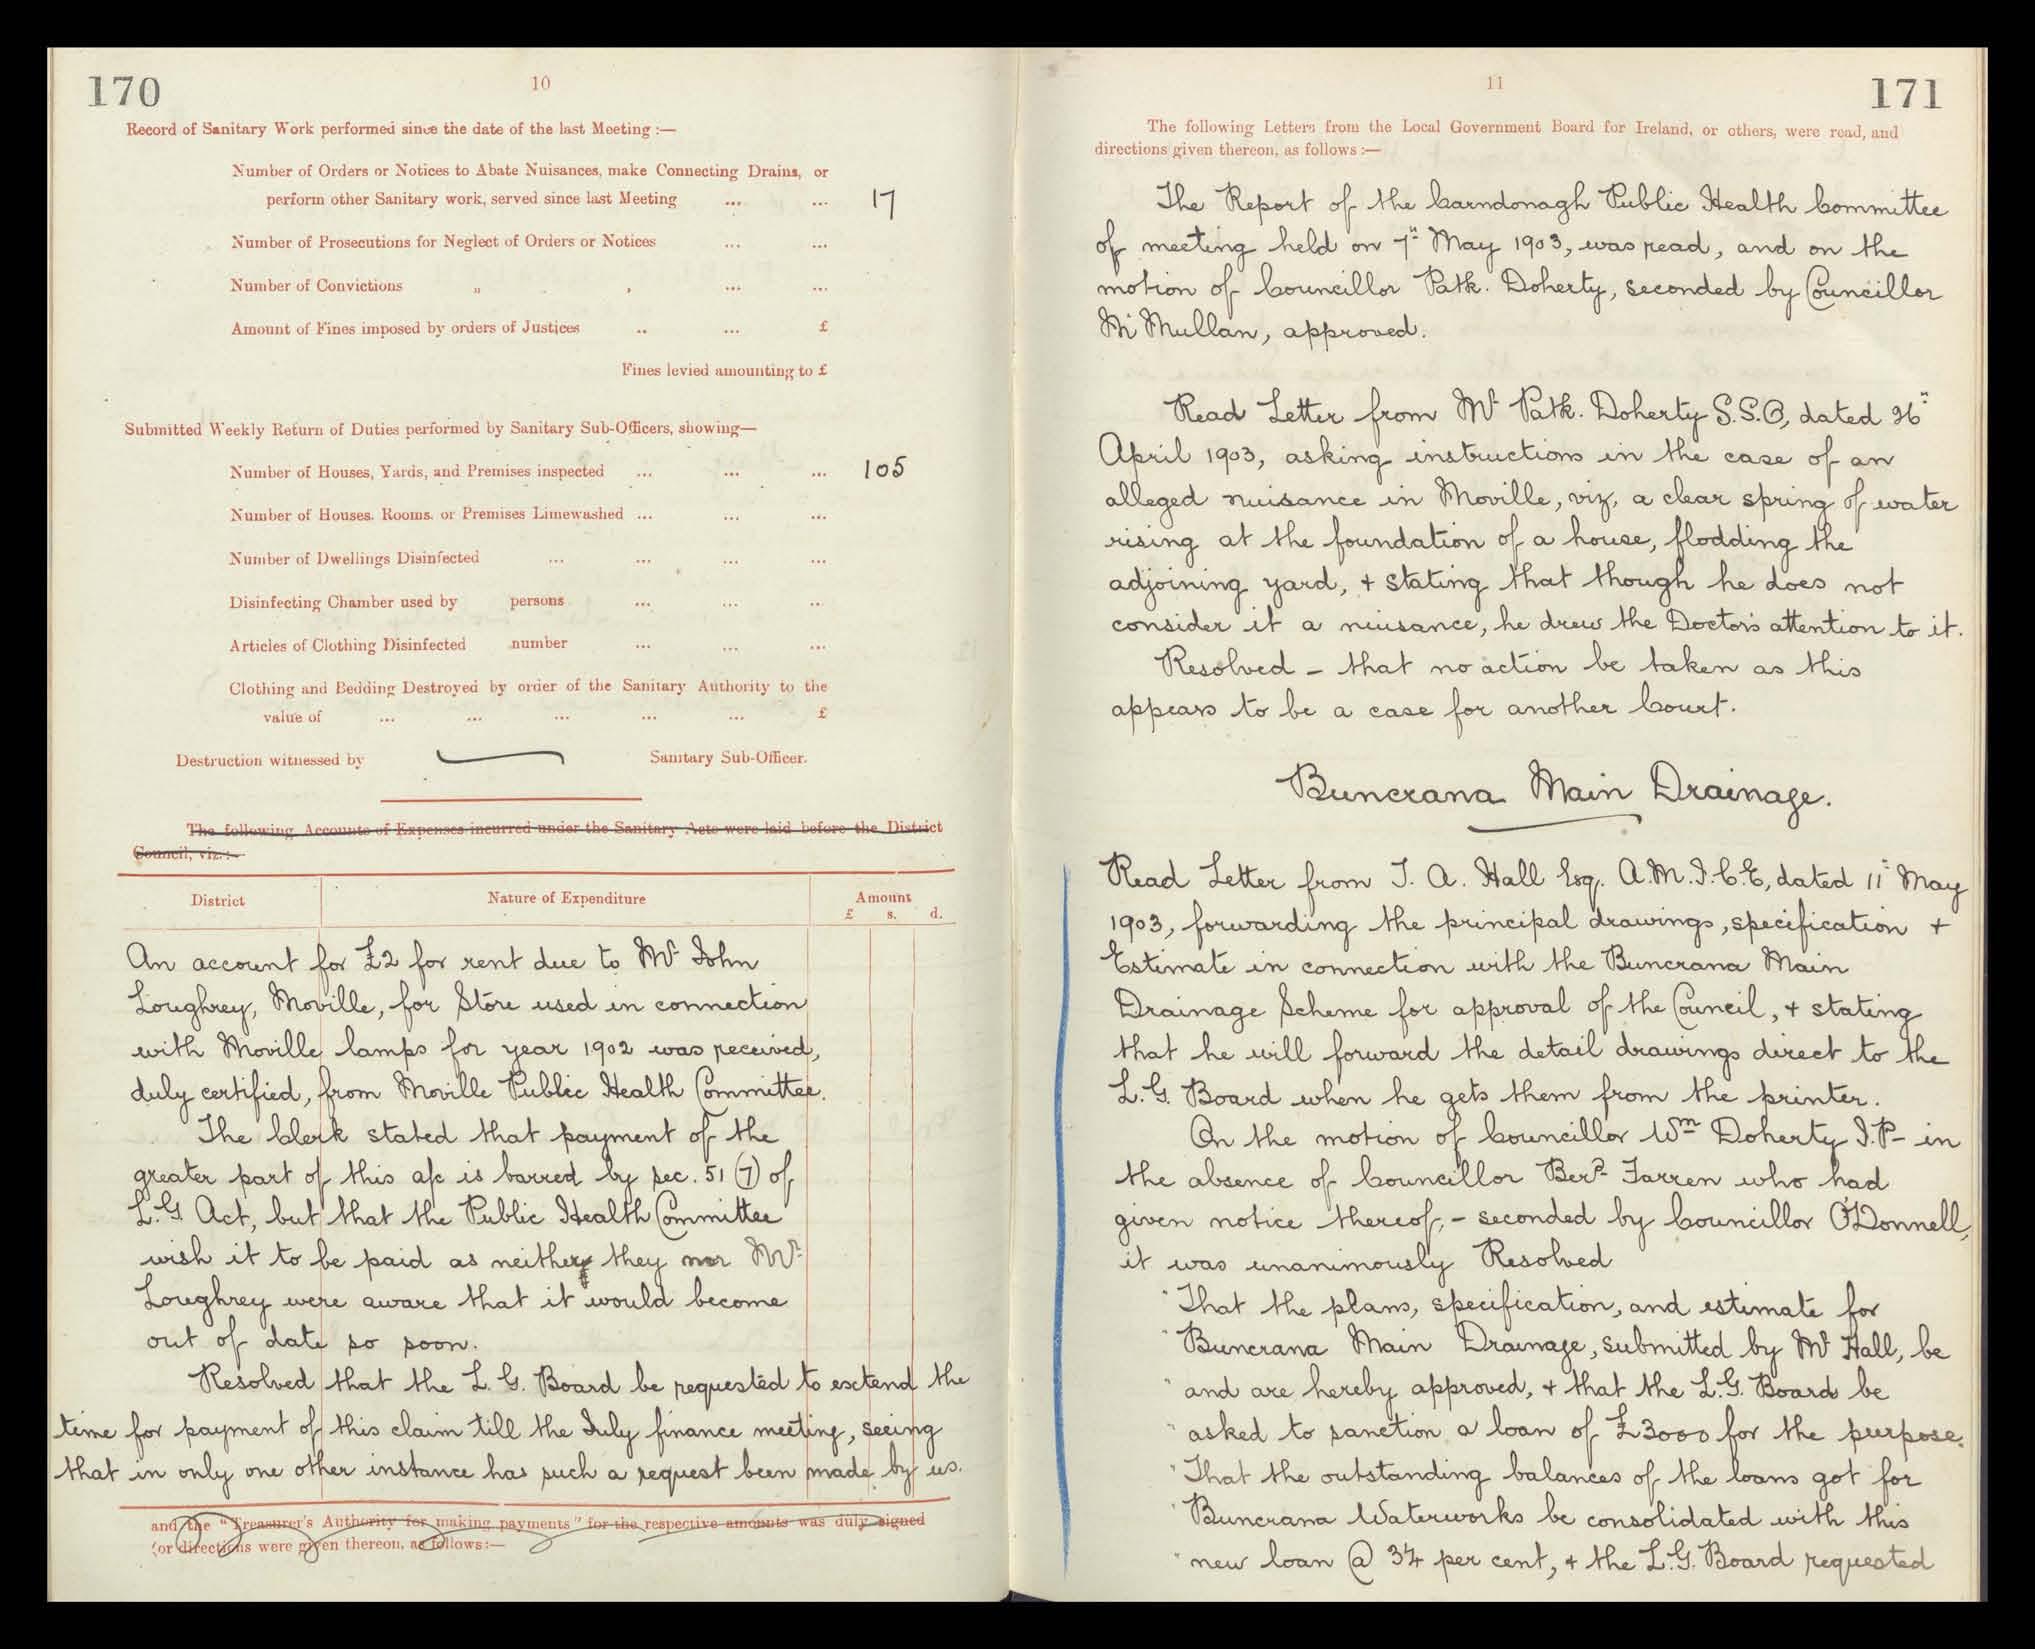 170
10
Record of Sanitary Work performed since the date of the last Meeting :—
Number of Orders or Notices to Abate Nuisances, make Connecting Drains, or
perform other Sanitary work, served since last Meeting ... ... 17
Number of Prosecutions for Neglect of Orders or Notices ... ...
Number of Convictions „ , ... ...
Amount of Fines imposed by orders of Justices .. ... £
Fines levied amounting to £
Submitted Weekly Return of Duties performed by Sanitary Sub-Officers, showing—
Number of Houses, Yards, and Premises inspected ... ... ... 105
Number of Houses. Rooms. or Premises Limewashed ... ... ...
Number of Dwellings Disinfected ... ... ... ...
Disinfecting Chamber used by persons ... ... ...
Articles of Clothing Disinfected number ... ... ...
Clothing and Bedding Destroyed by order of the Sanitary Authority to the
value of ... ... ... ... ... £
Destruction witnessed by Sanitary Sub-Officer.
The following Accounts of Expenses incurred under the Sanitary Acts were laid before the District
Council, viz.:-
District Nature of Expenditure Amount
£ s. d.
An account for £2 for rent due to Mr John
Loughrey, Moville, for Store used in connection
with Moville lamps for year 1902 was received,
duly certified, from Moville Public Health Committee.
The Clerk stated that payment of the
greater part of this a/c is barred by sec. 51 (7) of
L.G Act, but that the Public Health Committee
wish it to be paid as neither they nor Mr
Loughrey were aware that it would become
out of date so soon.
Resolved that the L. G. Board be requested to extend the
time for payment of this claim till the July finance meeting, seeing
that in only one other instance has such a request been made by us.
and the "Treasurer's Authority for making payments" for the respective amounts was duly signed
(or directions were given thereon, as follows:—
11
171
The following Letters from the Local Government Board for Ireland, or others, were read, and
directions given thereon, as follows :—
The Report of the Carndonagh Public Health Committee
of meeting held on 7" May 1903, was read, and on the
motion of Councillor Patk. Doherty, seconded by Councillor
Mc Mullan, approved.
Read Letter from Mr Patk. Doherty S.S.O, dated 26"
April 1903, asking instructions in the case of an
alleged nuisance in Moville, viz, a clear spring of water
rising at the foundation of a house, flodding the
adjoining yard, + stating that though he does not
consider it a nuisance, he drew the Doctor's attention to it.
Resolved - that no action be taken as this
appears to be a case for another Court.
Buncrana Main Drainage.
Read Letter from J. A. Hall Esq. A.M.I.C.E, dated 11" May
1903, forwarding the principal drawings, specification +
Estimate in connection with the Buncrana Main
Drainage Scheme for approval of the Council, + stating
that he will forward the detail drawings direct to the
L. G. Board when he gets them from the printer.
On the motion of Councillor Wm Doherty J.P - in
the absence of Councillor Berd Farren who had
given notice thereof, - seconded by Councillor O'Donnell,
it was unanimously Resolved
"That the plans, specification, and estimate for
" Buncrana Main Drainage, submitted by Mr Hall, be
" and are hereby approved, + that the L.G. Board be
" asked to sanction a loan of £3000 for the purpose.
"That the outstanding balances of the loans got for
" Buncrana Waterworks be consolidated with this
" new loan @ 3¼ per cent, + the L.G. Board requested